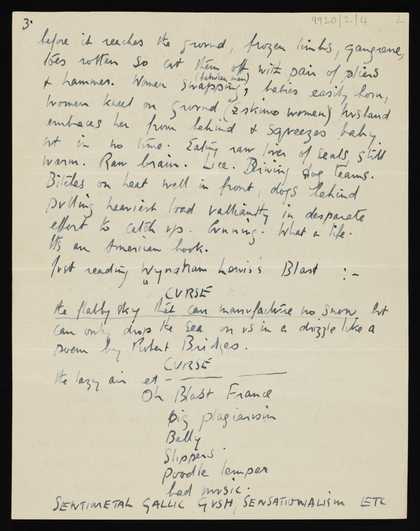 3.
9920/2/4
2
before it reaches the ground, frozen limbs, gangrene,
toes rotten so cut them off with pair of pliers
(between men)
& hammer. Women swapping, babies easily born,
Women kneel on ground (Eskimo women) husband
embraces her from behind & squeezes baby
out in no time. Eating raw liver of seals still
warm. Raw brain. Lice. Driving dog teams.
Bitches on heat well in front, dogs behind
pulling heaviest load valliantly in desparate
effort to catch up. Cunning. What a life.
Its an American book.
Just reading Wyndham Lewis's Blast :-
CURSE
the flabby sky that can manufacture no snow, but
can only drop the sea on us in a drizzle like a
poem by Robert Bridges.
CURSE
the lazy air et
Oh Blast France
pig plagiarism
Belly
Slippers.
poodle temper
bad music.
SENTIMETAL GALLIC GUSH, SENSATIONALISM ETC